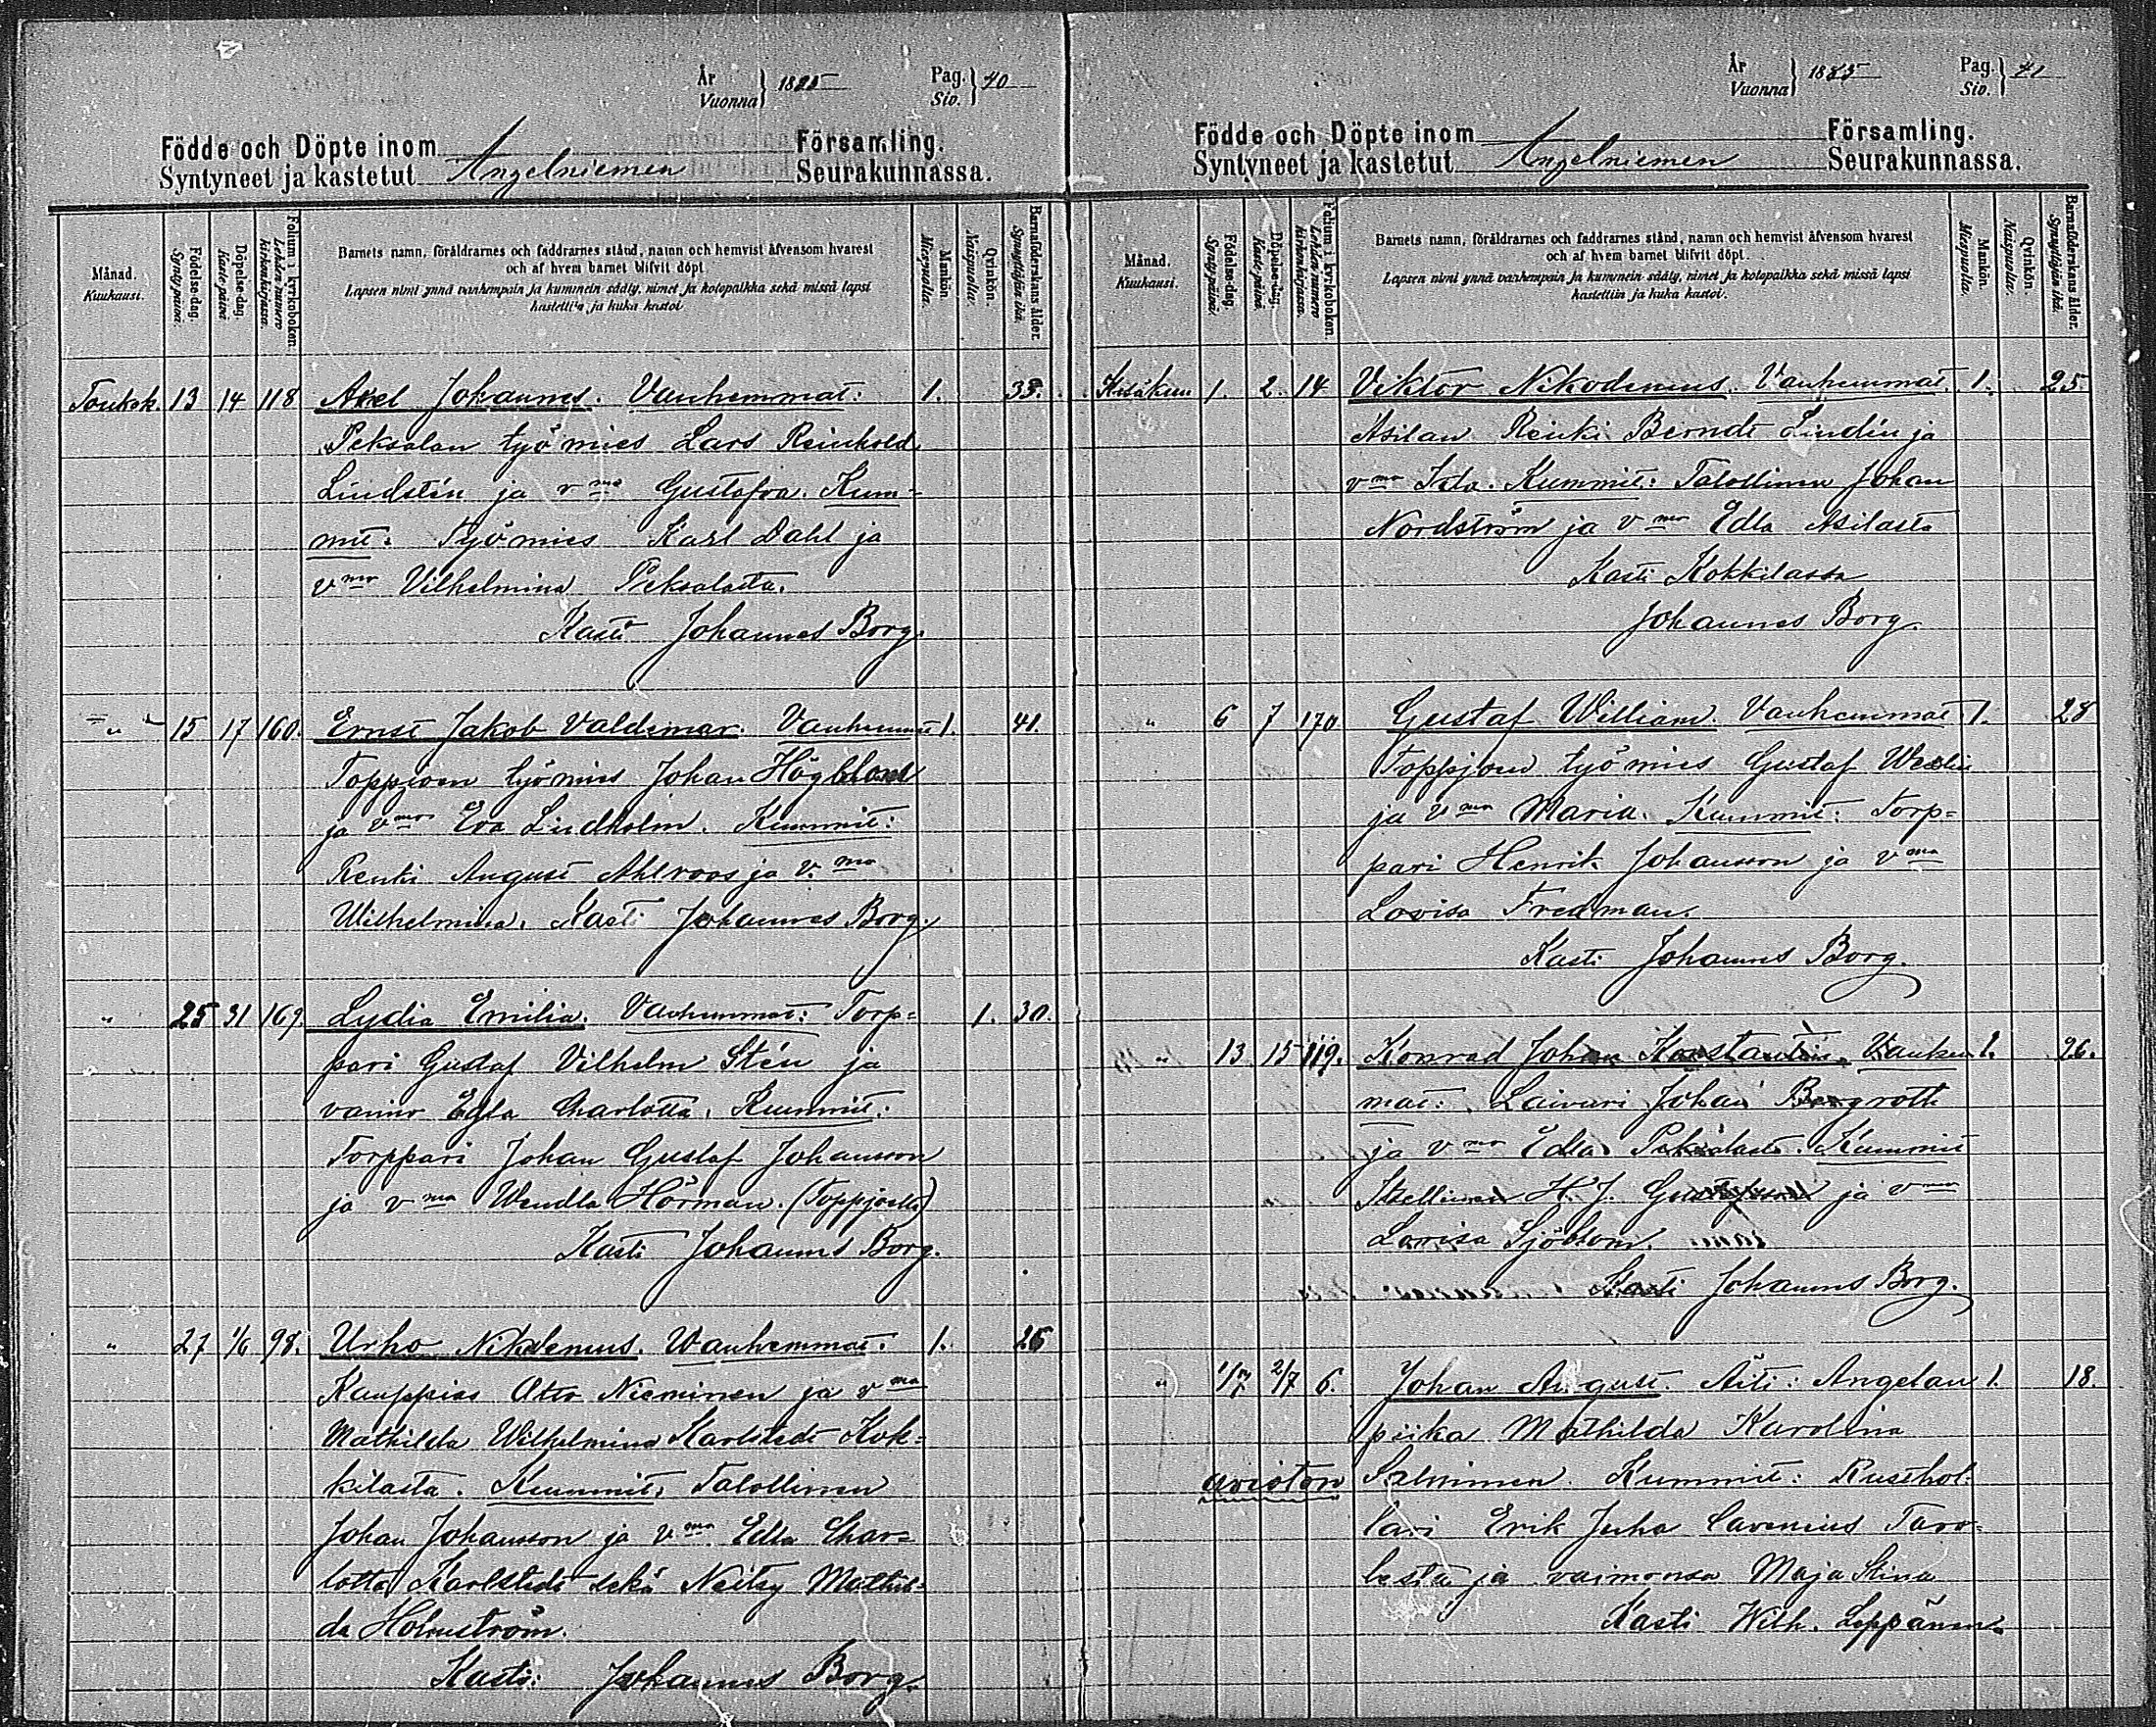 År
Vuonna } 1885 Pag.
Siv. } 40
Födde och Döpte inom Församling.
Syntyneet ja kastetut Angelniemen Seurakunnassa.
Månad.
Kuukausi.
Födelse-dag.
Syntypäivä.
Döpelse-dag.
Kaste-päivä.
Folium i kyrkoboken.
Lehden numero
kirkonkirjassa.
Barnets namn, föräldrarnes och faddrarnes stånd, namn och hemvist äfvensom hvarest
och af hvem barnet blifvit döpt
Lapsen nimi ynnä vanhempain ja kummein sääty, nimet ja kotopaikka sekä missä lapsi
kastettiin ja kuka kastoi
Mankön.
Miespuolia.
Qvinkön.
Naispuolia.
Barnaföderskans ålder.
Synnyttäjän ikä.
Toukok. 13 14 118 Axel Johannes. Vanhemmat: 1. 33.
Peksalan työmies Lars Reinhold
Lindstén ja vmo Gustafva. Kum-
mit: Työmies Karl Dahl ja
vmo Vilhelmina Peksalasta.
Kasti Johannes Borg.
" 15 17 160. Ernst Jakob Valdemar. Vanhemmat 1. 41.
Toppjoen työmies Johan Högblom
ja vmo Eva Lindholm. Kummit:
Renki August Ahlroos ja v.mo
Wilhelmina. Kasti Johannes Borg.
" 25 31 169. Lydia Emilia. Vanhemmat: Torp= 1. 30.
pari Gustaf Vilhelm Stén ja
vaimo Edla Charlotta. Kummit:
Torppari Johan Gustaf Johansson
ja vmo Wendla Hörman. (Toppjoelta)
Kasti Johannes Borg.
" 27 1/6 98. Urho Nikodemus. Wanhemmat. 1. 26
Kauppias Otto Nieminen ja vmo
Mathilda Wilhelmina Karlstedt Kok=
kilasta. Kummit: Talollinen
Johan Johansson ja vmo Edla Char=
lotta Karlstedt sekä Neitsy Mathil=
da Holmström.
Kasti: Johannes Borg.
År
Vuonna } 1885 Pag.
Siv. } 41
Födde och Döpte inom Församling.
Syntyneet ja kastetut Angelniemen Seurakunnassa.
Månad.
Kuukausi.
Födelse-dag.
Syntypäivä.
Döpelse-dag.
Kaste-päivä.
Folium i kyrkoboken.
Lehden numero
kirkonkirjassa.
Barnets namn, föräldrarnes och faddrarnes stånd, namn och hemvist äfvensom hvarest
och af hvem barnet blifvit döpt.
Lapsen nimi ynnä vanhempain ja kummein sääty, nimet ja kotopaikka sekä missä lapsi
kastettiin ja kuka kastoi.
Mankön.
Miespuolia.
Qvinkön.
Naispuolia.
Barnaföderskans ålder.
Synnyttäjän ikä.
Kesäkuu 1. 2. 14 Viktor Nikodemus. Vanhemmat 1. 25
Asilan Renki Berndt Lindén ja
vmo Ida. Kummit: Talollinen Johan
Nordström ja vmo Edla Asilasta
Kasti Kokkilassa
Johannes Borg.
" 6 7 170 Gustaf William. Vanhemmat 1. 28
Toppjoen työmies Gustaf Weslin
ja vmo Maria. Kummit: Torp=
pari Henrik Johansson ja vmo
Lovisa Fredman.
Kasti Johannes Borg.
" 13 15 119. Konrad Johan Konstantin. Vanhem 1. 26.
mat: Laivuri Johan Bergroth
ja vmo Edla Peksalasta. Kummit
Itsellinen H. J. Gustafsson ja vmo
Lovisa Sjöblom.
Kasti Johannes Borg.
" 1/7 2/7 6. Johan August. Äiti: Angelan 1. 18.
piika Mathilda Karolina
avioton Salminen. Kummit: Rusthol-
lari Erik Juha Cavenius Taro-
lasta ja vaimonsa Maja Stina
Kasti Wilh. Leppänen.